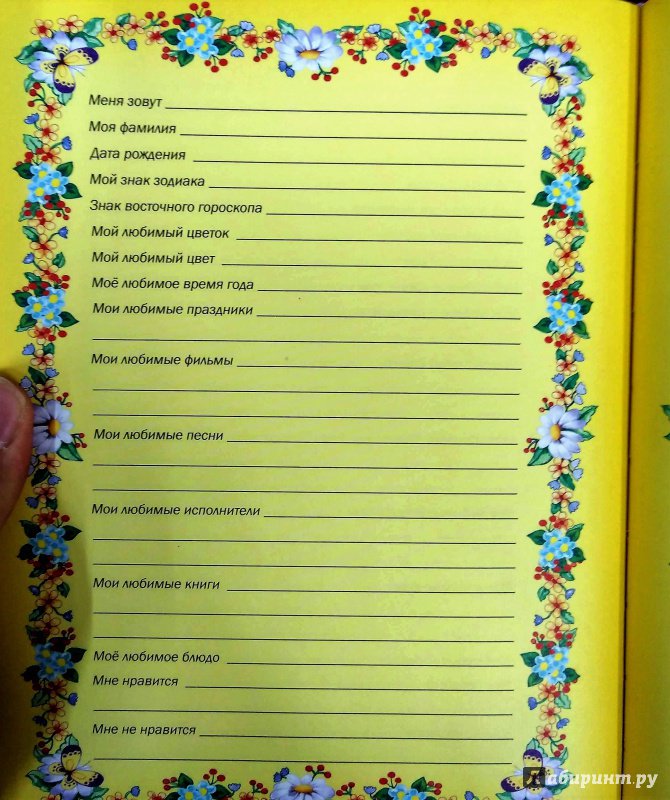 Меня зовут
Моя фамилия
Дата рождения
Мой знак зодиака
Знак восточного гороскопа
Мой любимый цветок
Мой любимый цвет
Моё любимое время года
Мои любимые праздники
Мои любимые фильмы
Мои любимые песни
Мои любимые исполнители
Мои любимые книги
Моё любимое блюдо
Мне нравится
Мне не нравится
Лабиринт.ру